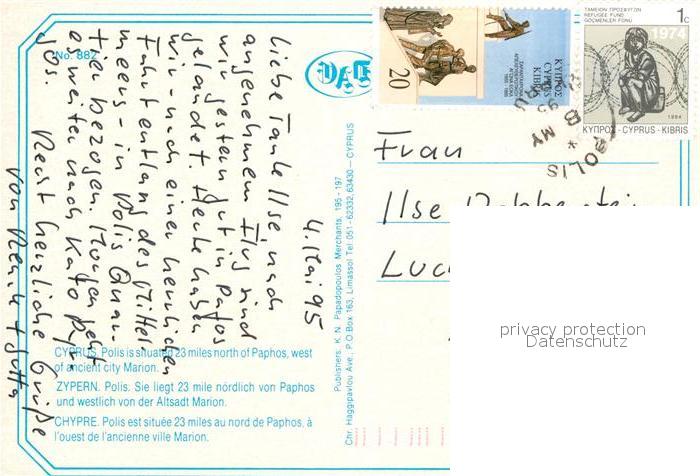 No. 882
4. Mai 95
Liebe Tante Ilse, nach
angenehmem Flug sind
wir gestern gut in Pafos
gelandet. Heute haben
wir - nach einer herrlichen
Fahrt entlang des Mittel-
meers - in Polis Quar-
tier bezogen. Morgen geht
es weiter nach Kato Pyr-
gos.
Recht herzliche Grüße
von
CYPRUS. Polis is situated 23 miles north of Paphos, west
of ancient city Marion.
ZYPERN. Polis. Sie liegt 23 mile nördlich von Paphos
und westlich von der Altsadt Marion.
CHYPRE. Polis est située 23 miles au nord de Paphos, à
l'ouest de l'ancienne ville Marion.
Publishers: K. N. Papadopoulos Merchants, 195 - 197
Chr. Haggipavlou Ave., P.O Box 163, Limassol Tel 051 - 62332, 63430 — CYPRUS
20
ΚΥΠΡΟΣ
CYPRUS
KIBRIS
ΤΑΜΕΙΟΝ ΠΡΟΣΦΥΓΩΝ
REFUGEE FUND
GÖÇMENLER FONU
1c
1974
1994
ΚΥΠΡΟΣ - CYPRUS - KIBRIS
POLIS
MY
Frau
Ilse
privacy protection
Datenschutz